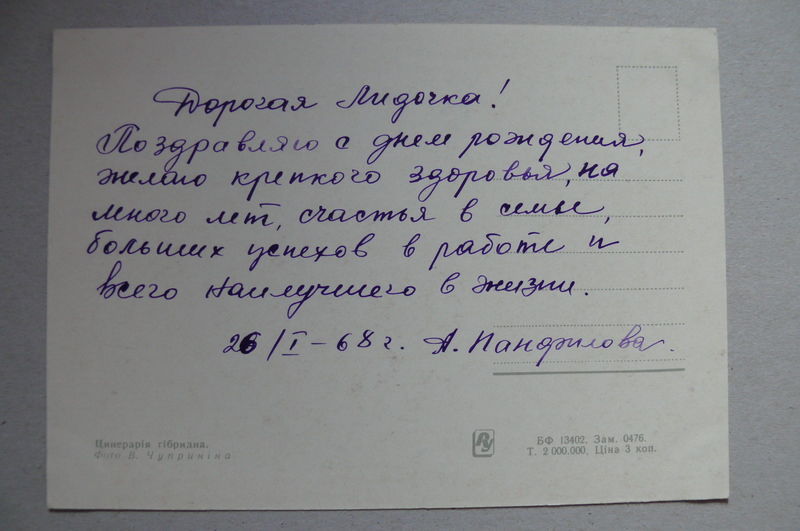 Дорогая Лидочка!
Поздравляю с днем рождения,
желаю крепкого здоровья, на
много лет, счастья в семье,
больших успехов в работе и
всего наилучшего в жизни.
26/I – 68 г. А. Панфилова.
Цинерарія гібридна.
Фото В. Чуприніна
РУ
БФ 13402. Зам. 0476.
Т. 2 000.000. Ціна 3 коп.